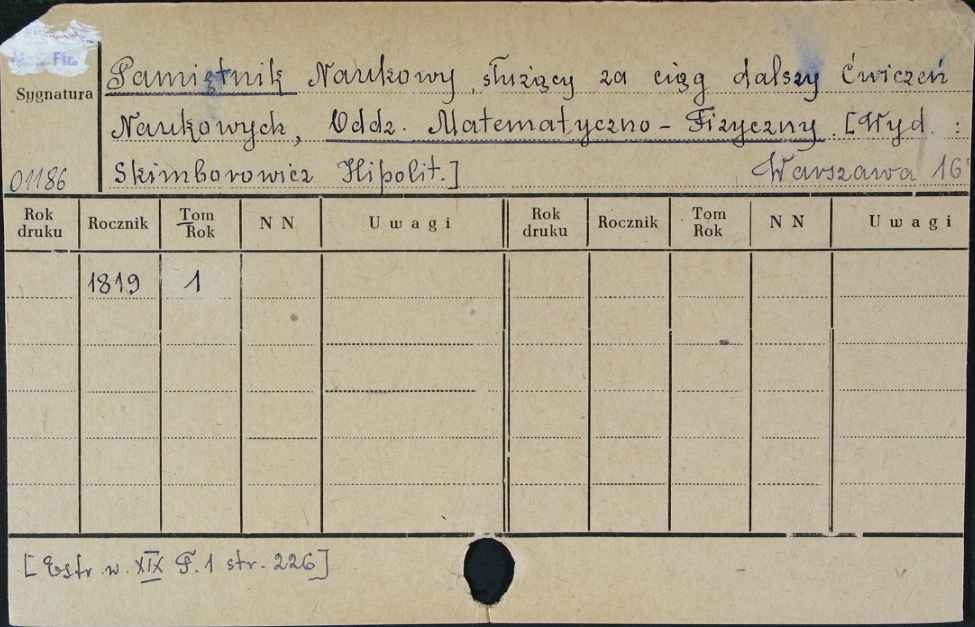 Fiz.
Sygnatura
Pamiętnik Naukowy, służący za ciąg dalszy Ćwiczeń
Naukowych, Oddz. Matematyczno-Fizyczny. [Wyd. :
Skimborowicz Hipolit.] Warszawa 16°
01186
Rok druku Rocznik Tom Rok N N Uwagi Rok druku Rocznik Tom Rok N N Uwagi
1819 1
[Estr. w. XIX F. 1 str. 226]